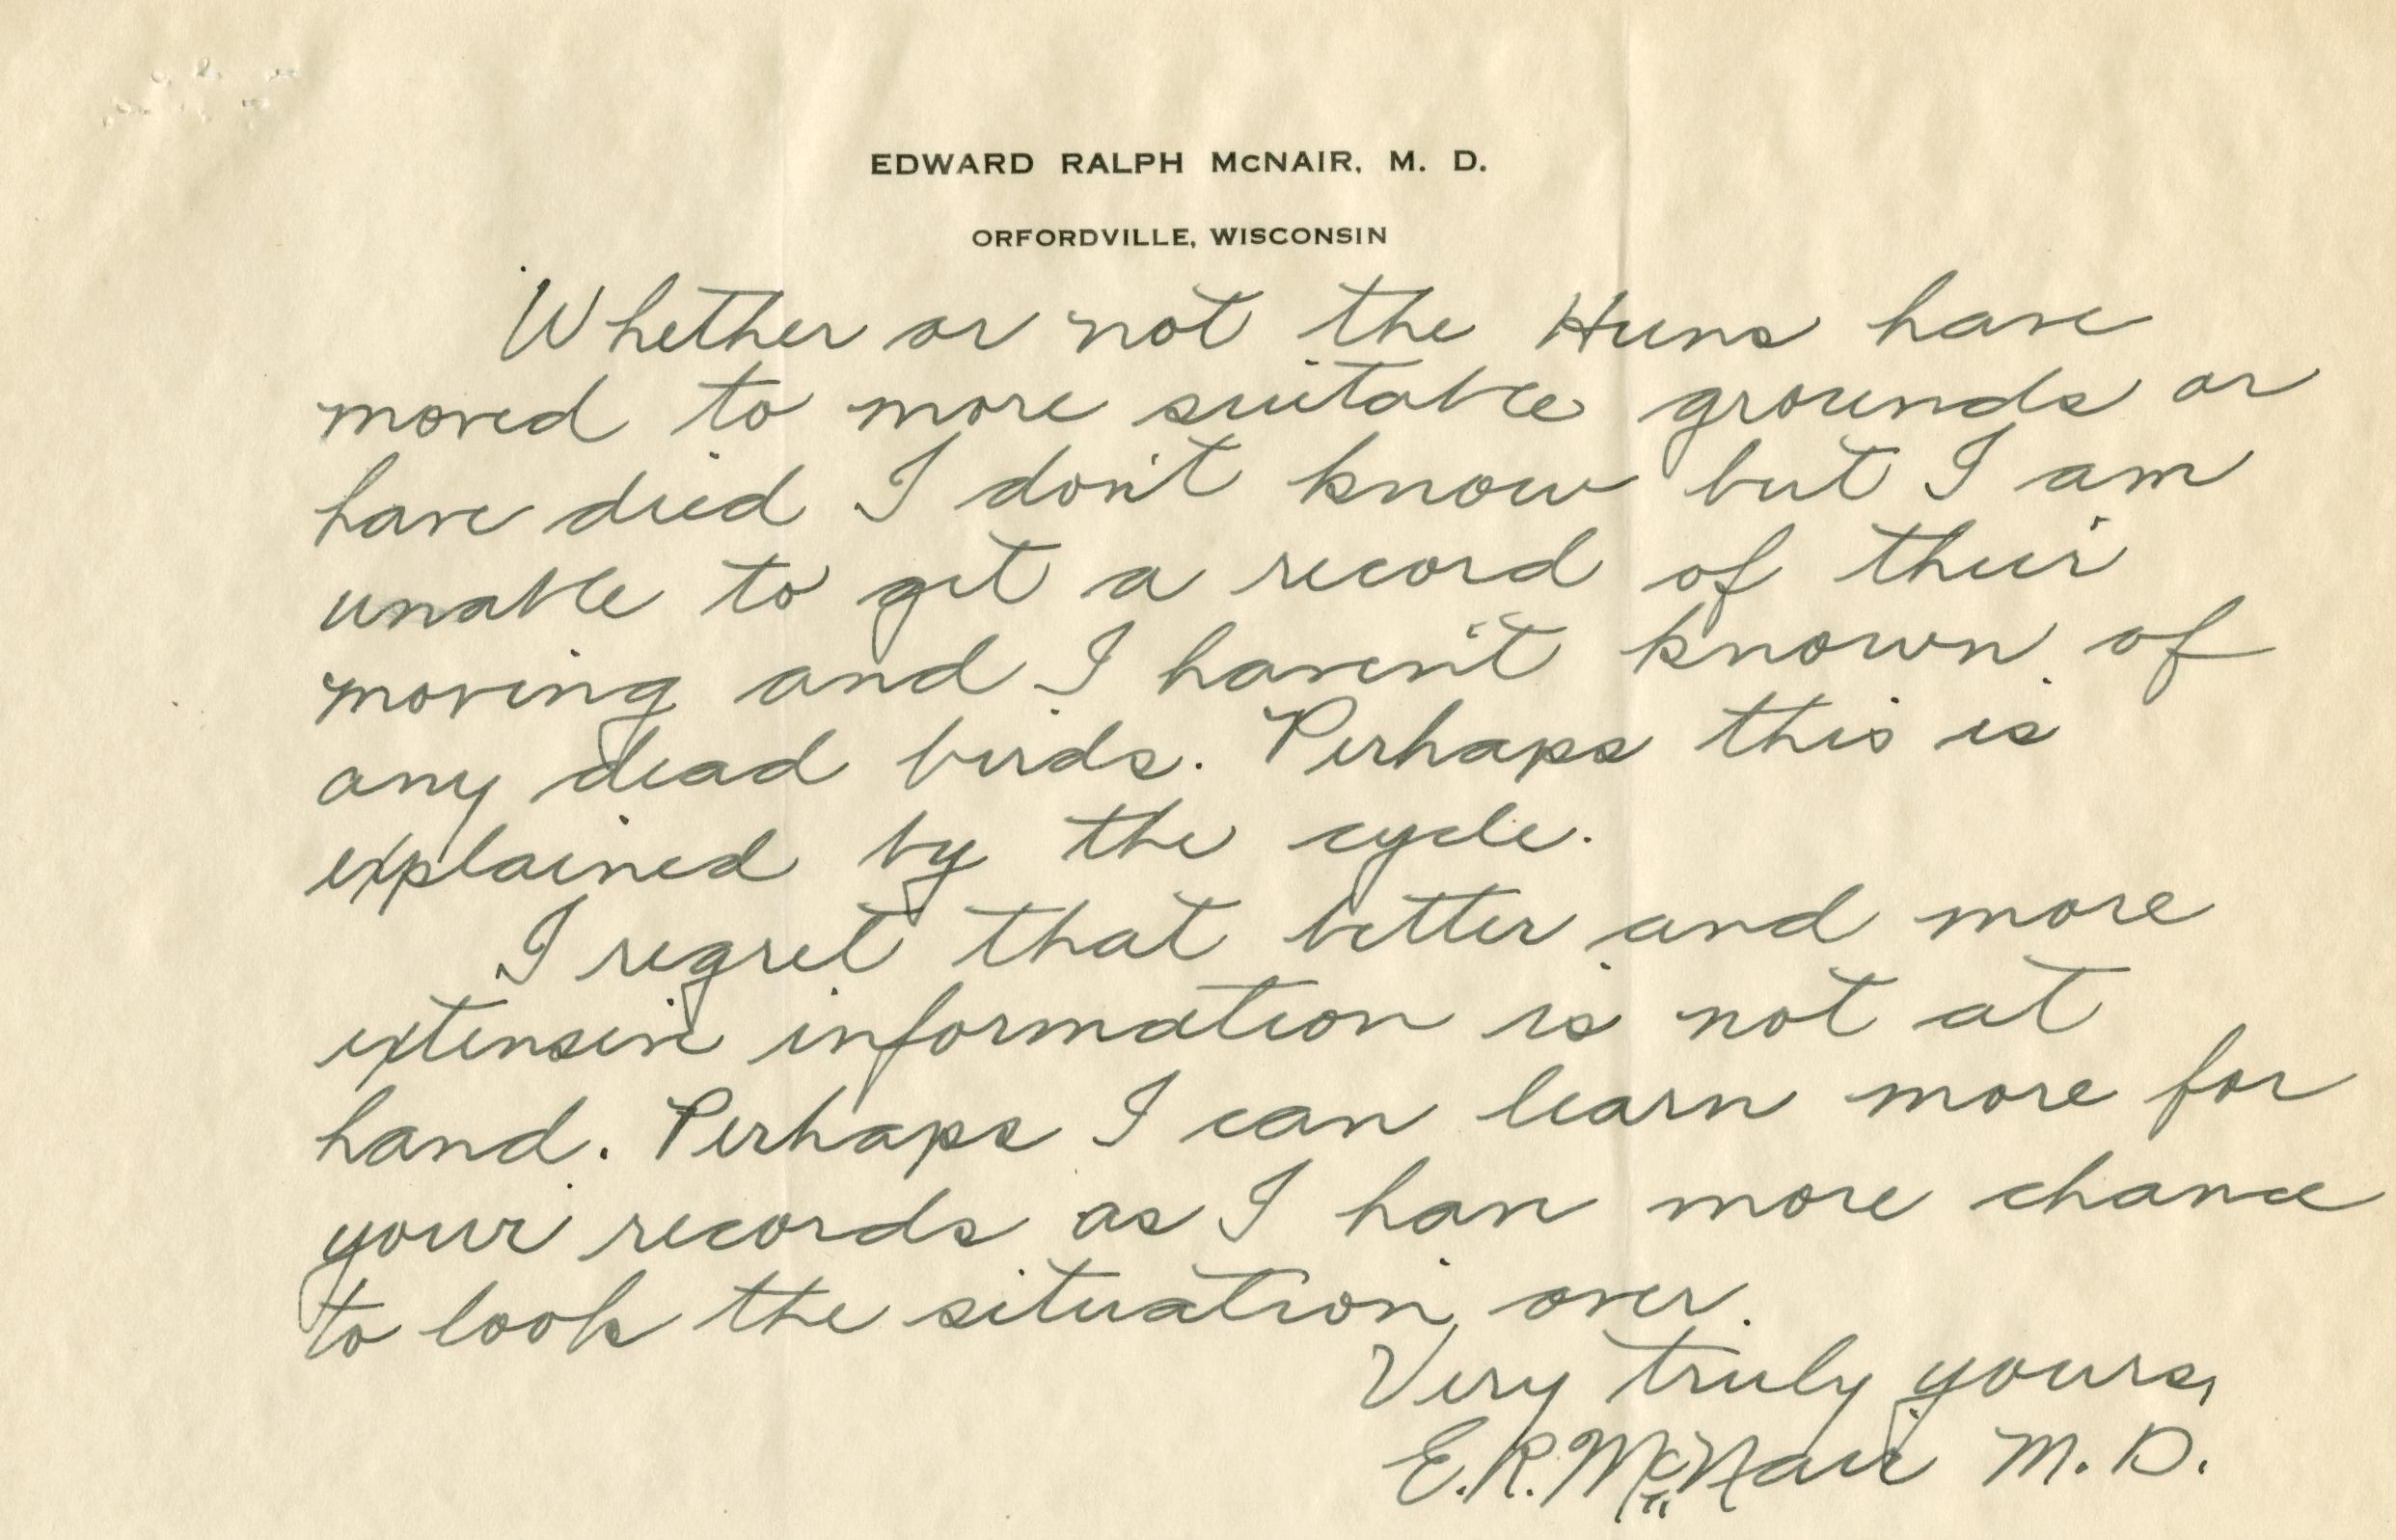 EDWARD RALPH McNAIR, M. D.
ORFORDVILLE, WISCONSIN
Whether or not the Huns have
moved to more suitable grounds or
have died I don't know but I am
unable to get a record of their
moving and I haven't known of
any dead birds. Perhaps this is
explained by the cycle.
I regret that better and more
extensive information is not at
hand. Perhaps I can learn more for
your records as I have more chance
to look the situation over.
Very truly yours,
E.R. McNair M.D.